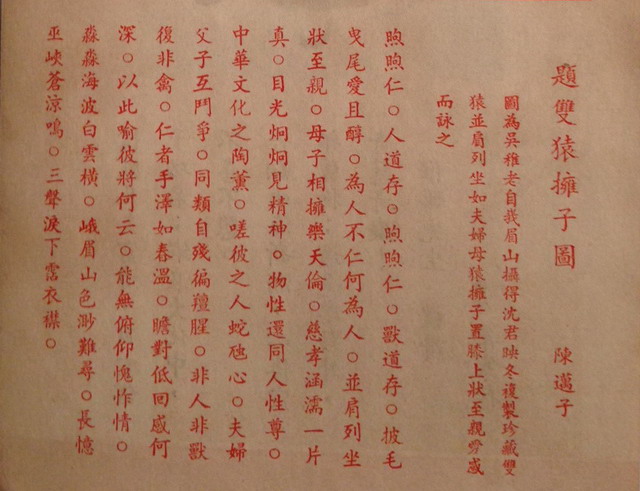 題雙猿擁子圖
陳邁子
圖為吳稚老自峩眉山攝得沈君映冬複製珍藏雙
猿並肩列坐如夫婦母猿擁子置膝上狀至親勞感
而詠之
煦煦仁。人道存。煦煦仁。獸道存。披毛
曳尾愛且醇。為人不仁何為人。並肩列坐
狀至親。母子相擁樂天倫。慈孝涵濡一片
真。目光炯炯見精神。物性還同人性尊。
中華文化之陶薰。嗟彼之人蛇虺心。夫婦
父子互鬥爭。同類自殘徧羶腥。非人非獸
復非禽。仁者手澤如春溫。瞻對低回感何
深。以此喻彼將何云。能無俯仰愧怍情。
淼淼海波白雲橫。峨眉山色渺難尋。長憶
巫峽蒼涼鳴。三聲淚下霑衣襟。